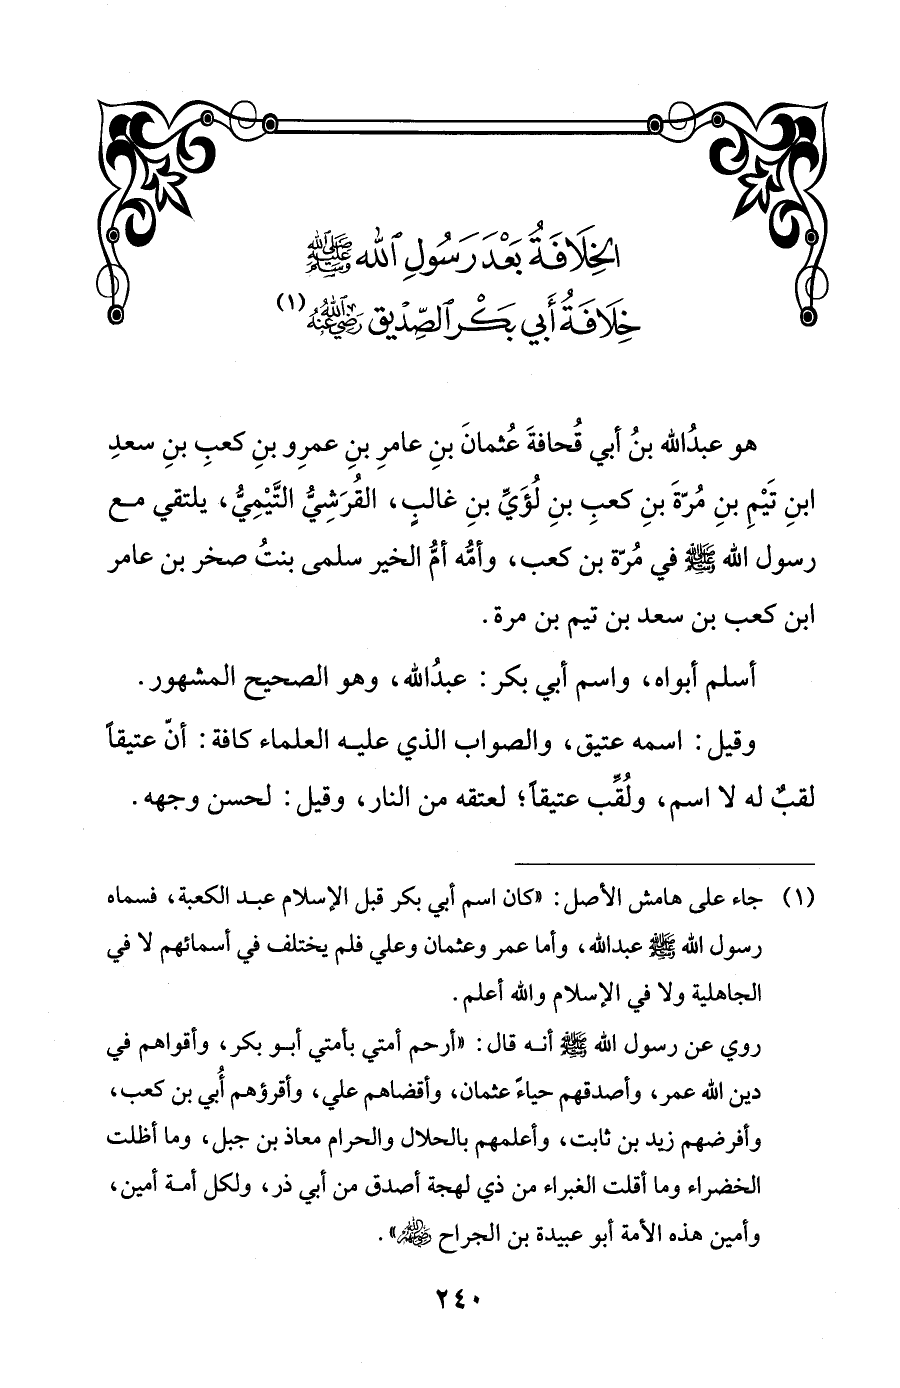 الخِلَافَةُ بَعْدَ رَسُولِ ٱللهِ ﷺ
خِلَافَةُ أَبي بَكْرٍ ٱلصِّدِّيق رَضِيَ ٱللَّهُ عَنْهُ (١)
هو عبدُالله بنُ أبي قُحافةَ عُثمانَ بنِ عامرِ بنِ عمرِو بنِ كعبِ بنِ سعدِ
ابنِ تَيْمِ بنِ مُرّةَ بنِ كعبِ بنِ لُؤَيِّ بنِ غالبٍ، القُرَشِيُّ التَّيْمِيُّ، يلتقي مع
رسول الله ﷺ في مُرّة بن كعب، وأمُّه أمُّ الخير سلمى بنتُ صخر بن عامر
ابن كعب بن سعد بن تيم بن مرة.
أسلم أبواه، واسم أبي بكر: عبدُالله، وهو الصحيح المشهور.
وقيل: اسمه عتيق، والصواب الذي عليه العلماء كافة: أنّ عتيقاً
لقبٌ له لا اسم، ولُقِّب عتيقاً؛ لعتقه من النار، وقيل: لحسن وجهه.
(١) جاء على هامش الأصل: «كان اسم أبي بكر قبل الإسلام عبد الكعبة، فسماه
رسول الله ﷺ عبدالله، وأما عمر وعثمان وعلي فلم يختلف في أسمائهم لا في
الجاهلية ولا في الإسلام والله أعلم.
روي عن رسول الله ﷺ أنه قال: «أرحم أمتي بأمتي أبو بكر، وأقواهم في
دين الله عمر، وأصدقهم حياءً عثمان، وأقضاهم علي، وأقرؤهم أُبي بن كعب،
وأفرضهم زيد بن ثابت، وأعلمهم بالحلال والحرام معاذ بن جبل، وما أظلت
الخضراء وما أقلت الغبراء من ذي لهجة أصدق من أبي ذر، ولكل أمة أمين،
وأمين هذه الأمة أبو عبيدة بن الجراح رضي الله عنهم».
٢٤٠